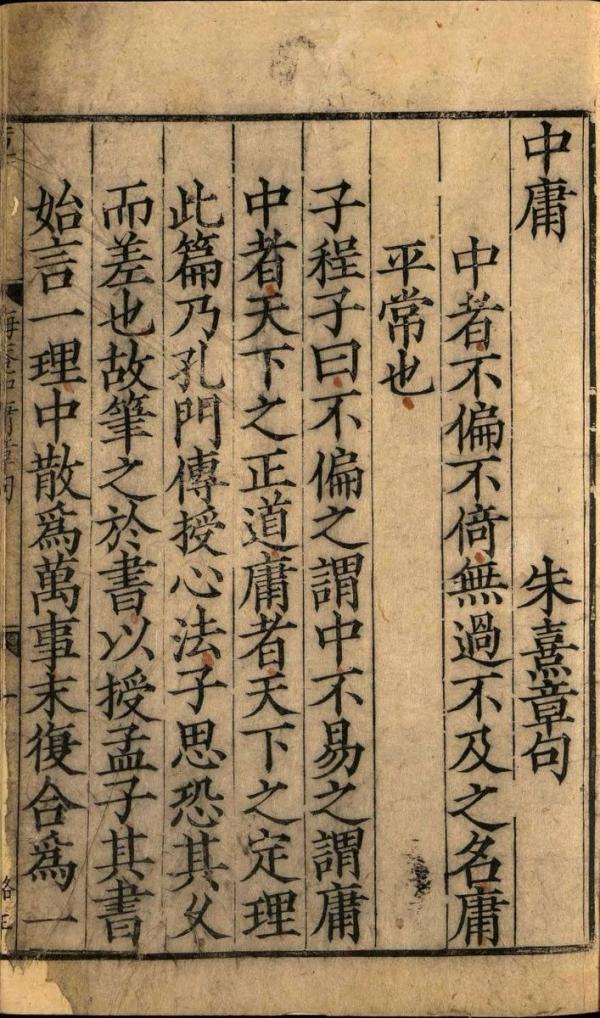 中庸 朱熹章句
中者不偏不倚無過不及之名庸
平常也
子程子曰不偏之謂中不易之謂庸
中者天下之正道庸者天下之定理
此篇乃孔門傳授心法子思恐其久
而差也故筆之於書以授孟子其書
始言一理中散爲萬事末復合爲一